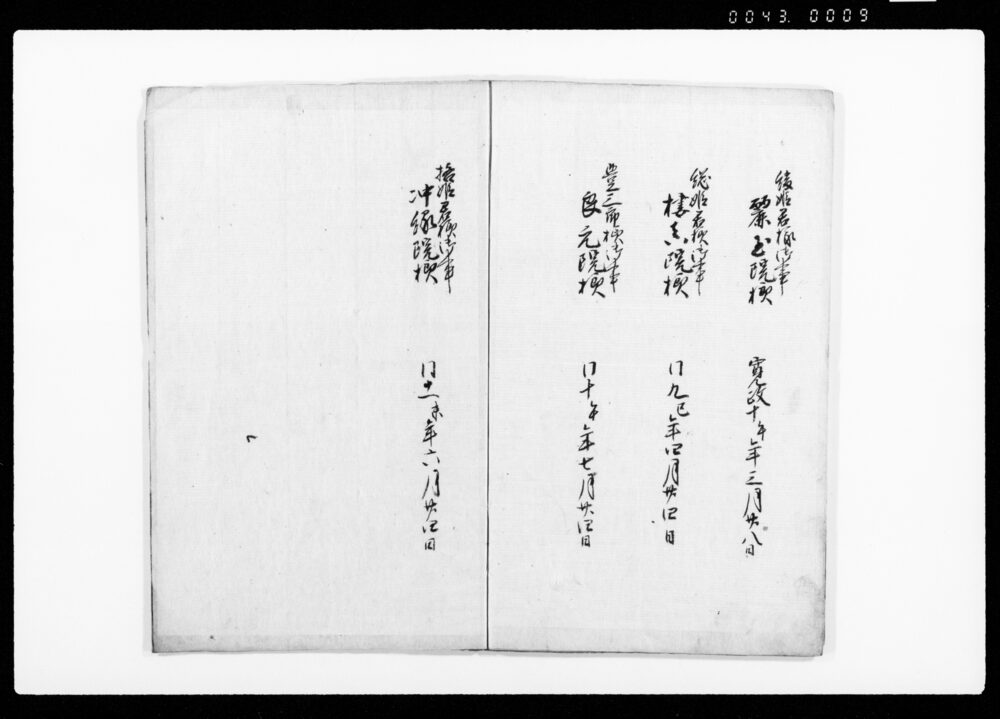 0043. 0009
綾姫君様御事
麗玉院様　寛政十午年三月廿八日
総姫君様御事
棲真院様　同九巳年四月廿四日
豊三郎様御事
良元院様　同十午年七月廿四日
格姫君様御事
冲縁院様　同十一未年六月廿四日